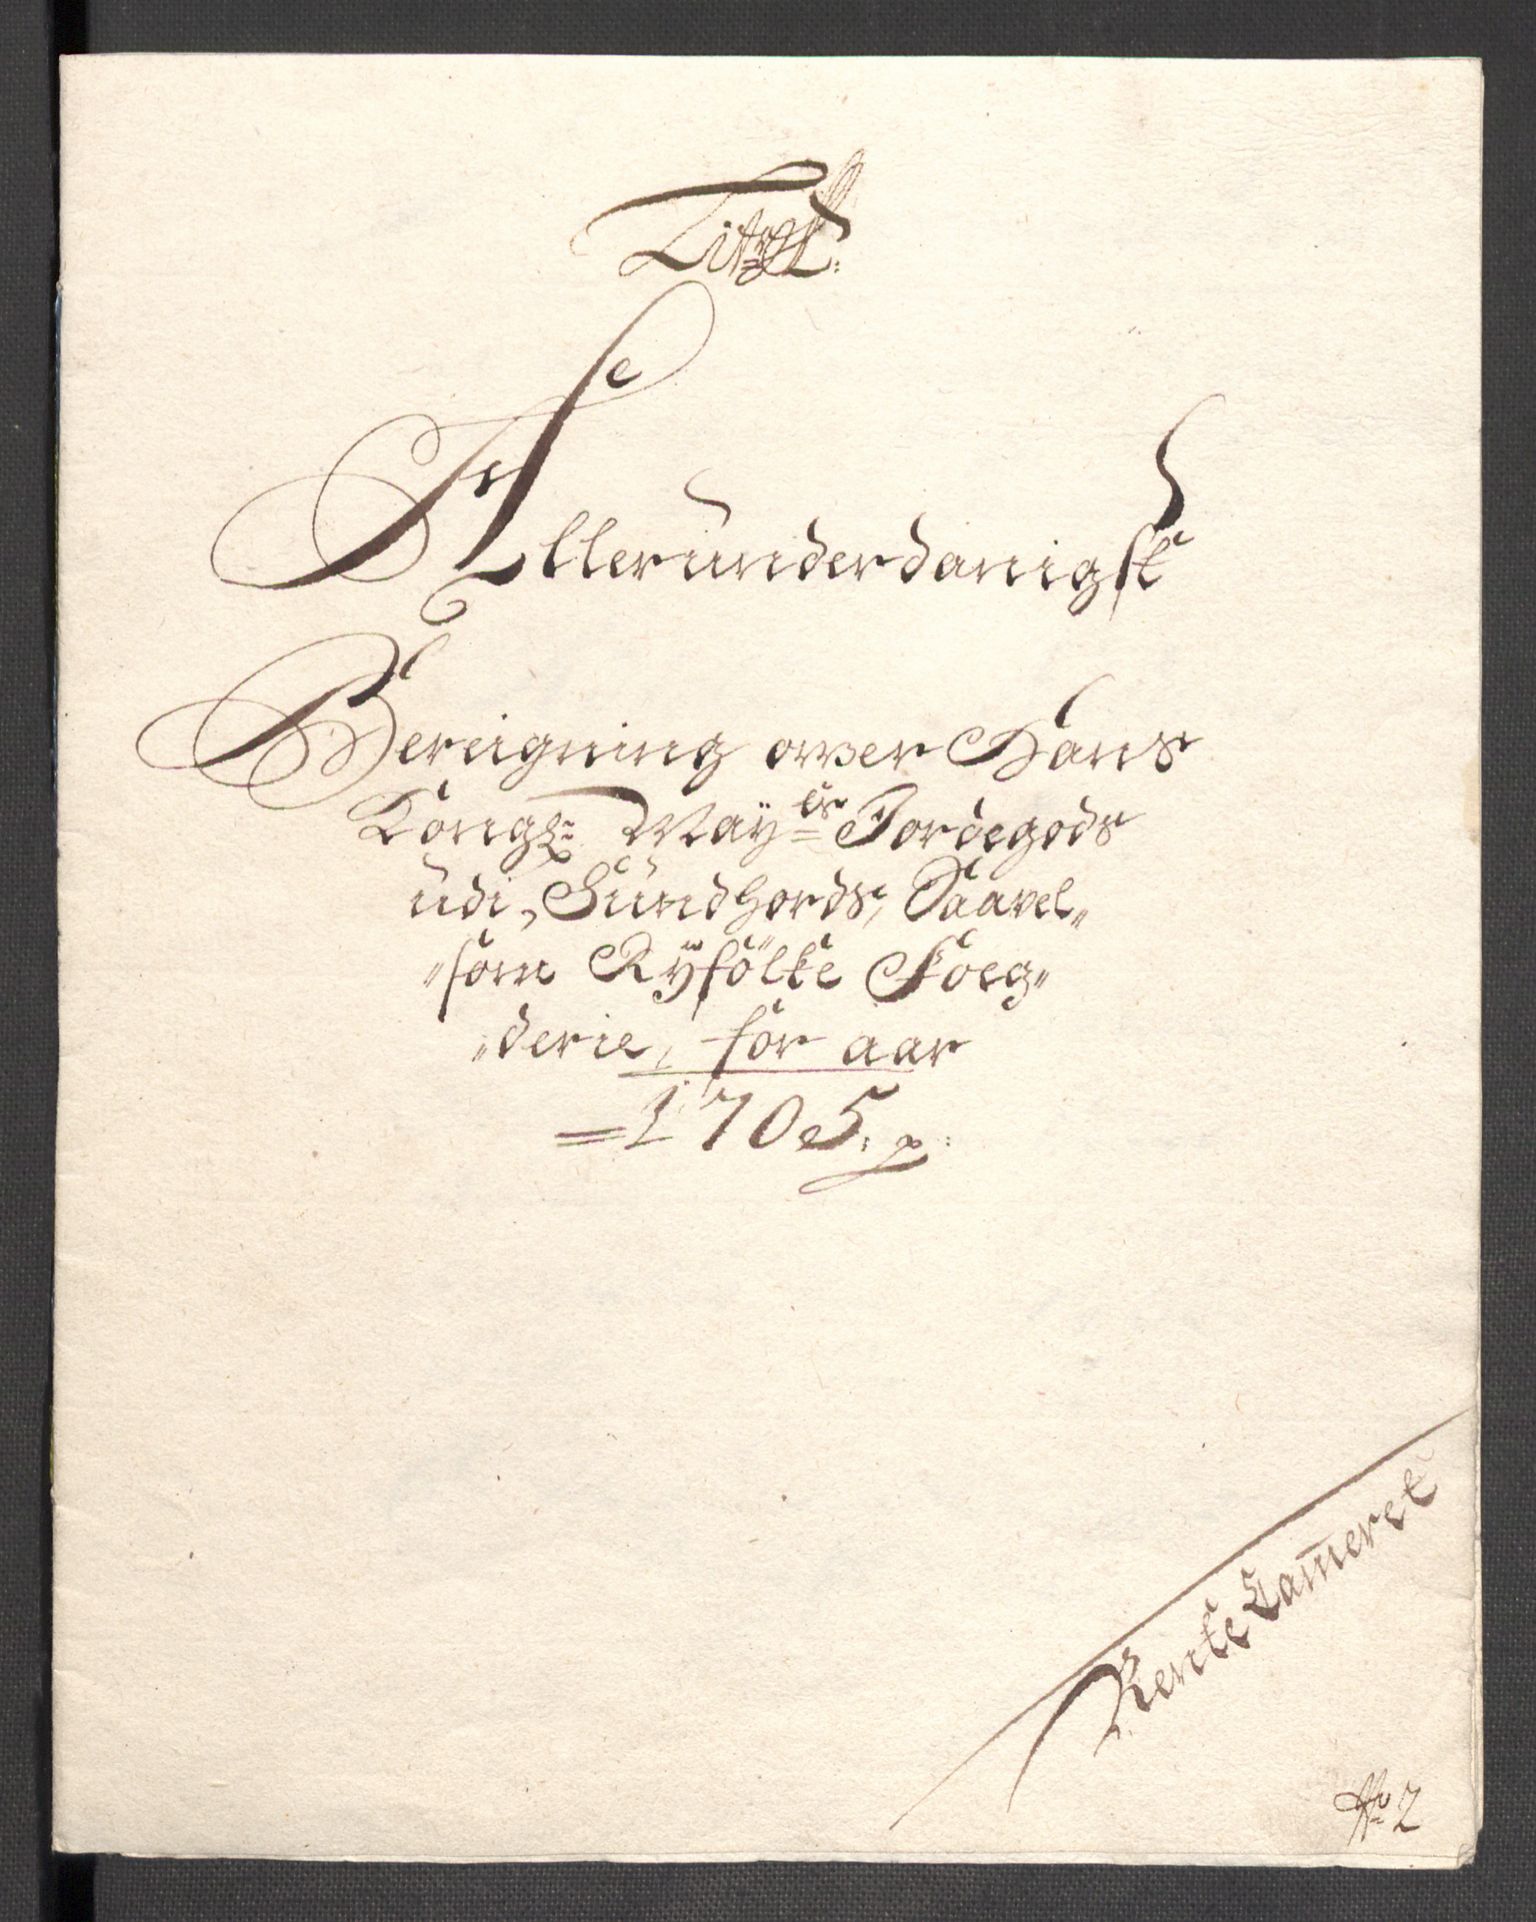 Alleründerdanigst
Bereigning over Hans
Kongl: Maÿ=es Jordegods
udi, Sundhords, Saavel„
„som Rÿfölke Foeg„
„derie, for aar
=1705.
Rente Cam̄eret
No 2